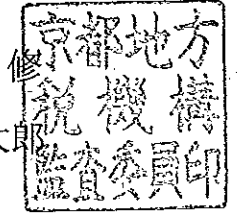 修
郎
京都地方
税機構
監査委員印